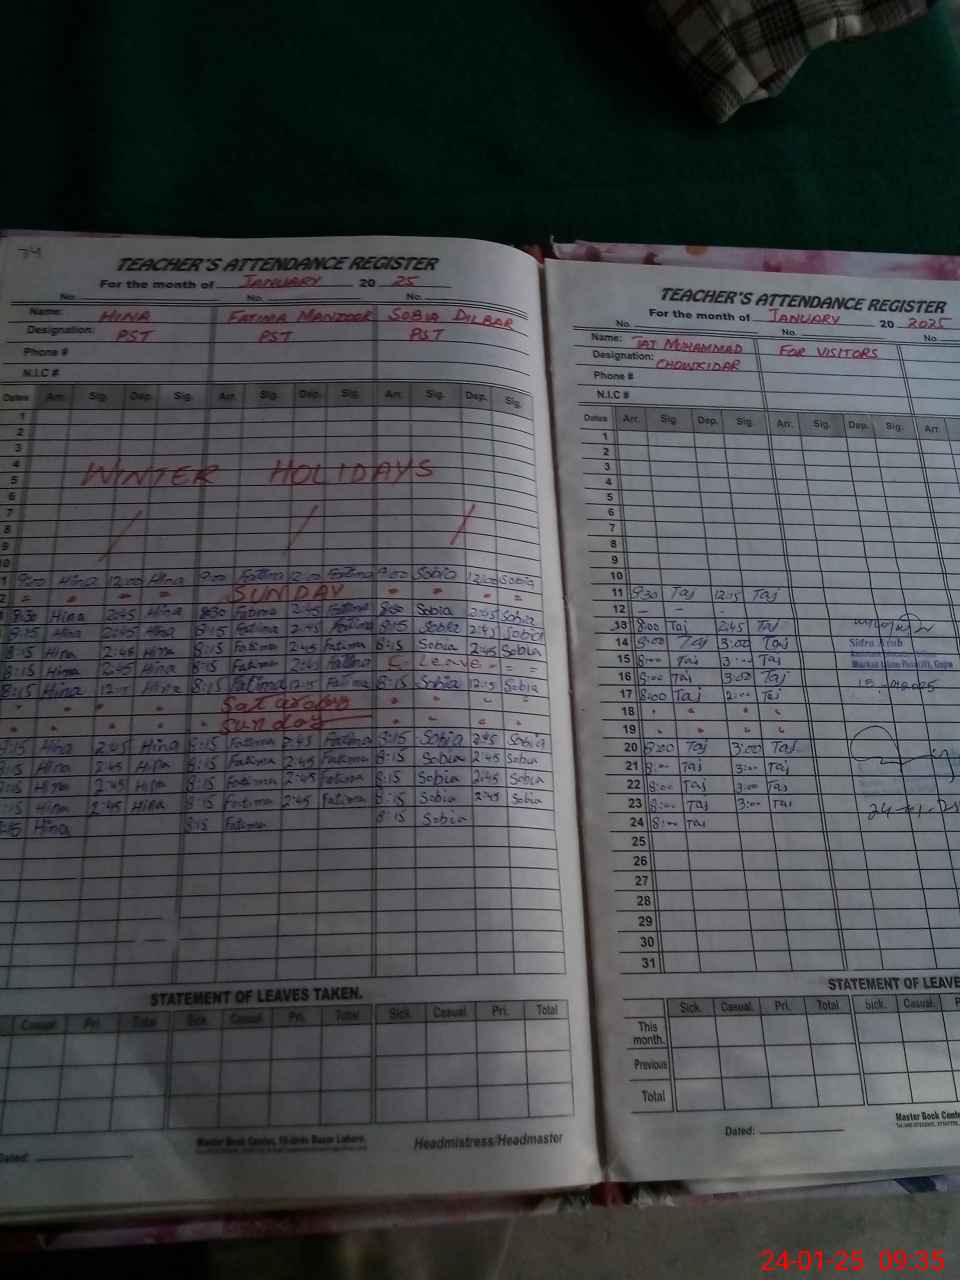 74
TEACHER'S ATTENDANCE REGISTER
For the month of JANUARY 20 25
No. No. No.
Name: HINA FATIMA MANZOOR SOBIA DILBAR
Designation: PST PST PST
Phone #
N.I.C #
Dates Arr. Sig. Dep. Sig. Arr. Sig. Dep. Sig. Arr. Sig. Dep. Sig.
1
2
3
4
5
WINTER HOLIDAYS
6
7
8
9
10
9:00 Hina 12:00 Hina 9:00 Fatima 12:00 Fatima 9:00 Sobia 12:00 Sobia
SUNDAY
8:30 Hina 2:45 Hina 8:30 Fatima 2:45 Fatima 8:30 Sobia 2:45 Sobia
8:15 Hina 2:45 Hina 8:15 Fatima 2:45 Fatima 8:15 Sobia 2:45 Sobia
8:15 Hina 2:45 Hina 8:15 Fatima 2:45 Fatima 8:15 Sobia 2:45 Sobia
8:15 Hina 2:45 Hina 8:15 Fatima 2:45 Fatima C. Leave
8:15 Hina 12:15 Hina 8:15 Fatima 12:15 Fatima 8:15 Sobia 12:15 Sobia
Sunday
8:15 Hina 2:45 Hina 8:15 Fatima 2:45 Fatima 8:15 Sobia 2:45 Sobia
8:15 Hina 2:45 Hina 8:15 Fatima 2:45 Fatima 8:15 Sobia 2:45 Sobia
8:15 Hina 2:45 Hina 8:15 Fatima 2:45 Fatima 8:15 Sobia 2:45 Sobia
8:15 Hina 2:45 Hina 8:15 Fatima 2:45 Fatima 8:15 Sobia 2:45 Sobia
Hina 8:15 Fatima 8:15 Sobia
STATEMENT OF LEAVES TAKEN.
Casual. Pri. Total Sick. Casual. Pri. Total Sick. Casual. Pri. Total
Dated:
Master Book Center, Urdu Bazar Lahore.
Headmistress/Headmaster
TEACHER'S ATTENDANCE REGISTER
For the month of JANUARY 20 2025
No. No. No.
Name: TAJ MUHAMMAD FOR VISITORS
Designation: CHOWKIDAR
Phone #
N.I.C #
Dates Arr. Sig. Dep. Sig. Arr. Sig. Dep. Sig. Arr.
1
2
3
4
5
6
7
8
9
10
11 9:30 Taj 12:15 Taj
12 - - -
13 8:00 Taj 2:45 Taj
14 8:00 Taj 3:00 Taj
15 8:00 Taj 3:00 Taj
16 8:00 Taj 3:00 Taj
17 8:00 Taj 2:00 Taj
18
19
20 8:00 Taj 3:00 Taj
21 8:00 Taj 3:00 Taj
22 8:00 Taj 3:00 Taj
23 8:00 Taj 3:00 Taj
24 8:00 Taj
25
26
27
28
29
30
31
24-01-25
STATEMENT OF LEAVE
Sick. Casual. Pri. Total Sick. Casual.
This month.
Previous
Total
Dated:
Master Book Cente
24-01-25 09:35